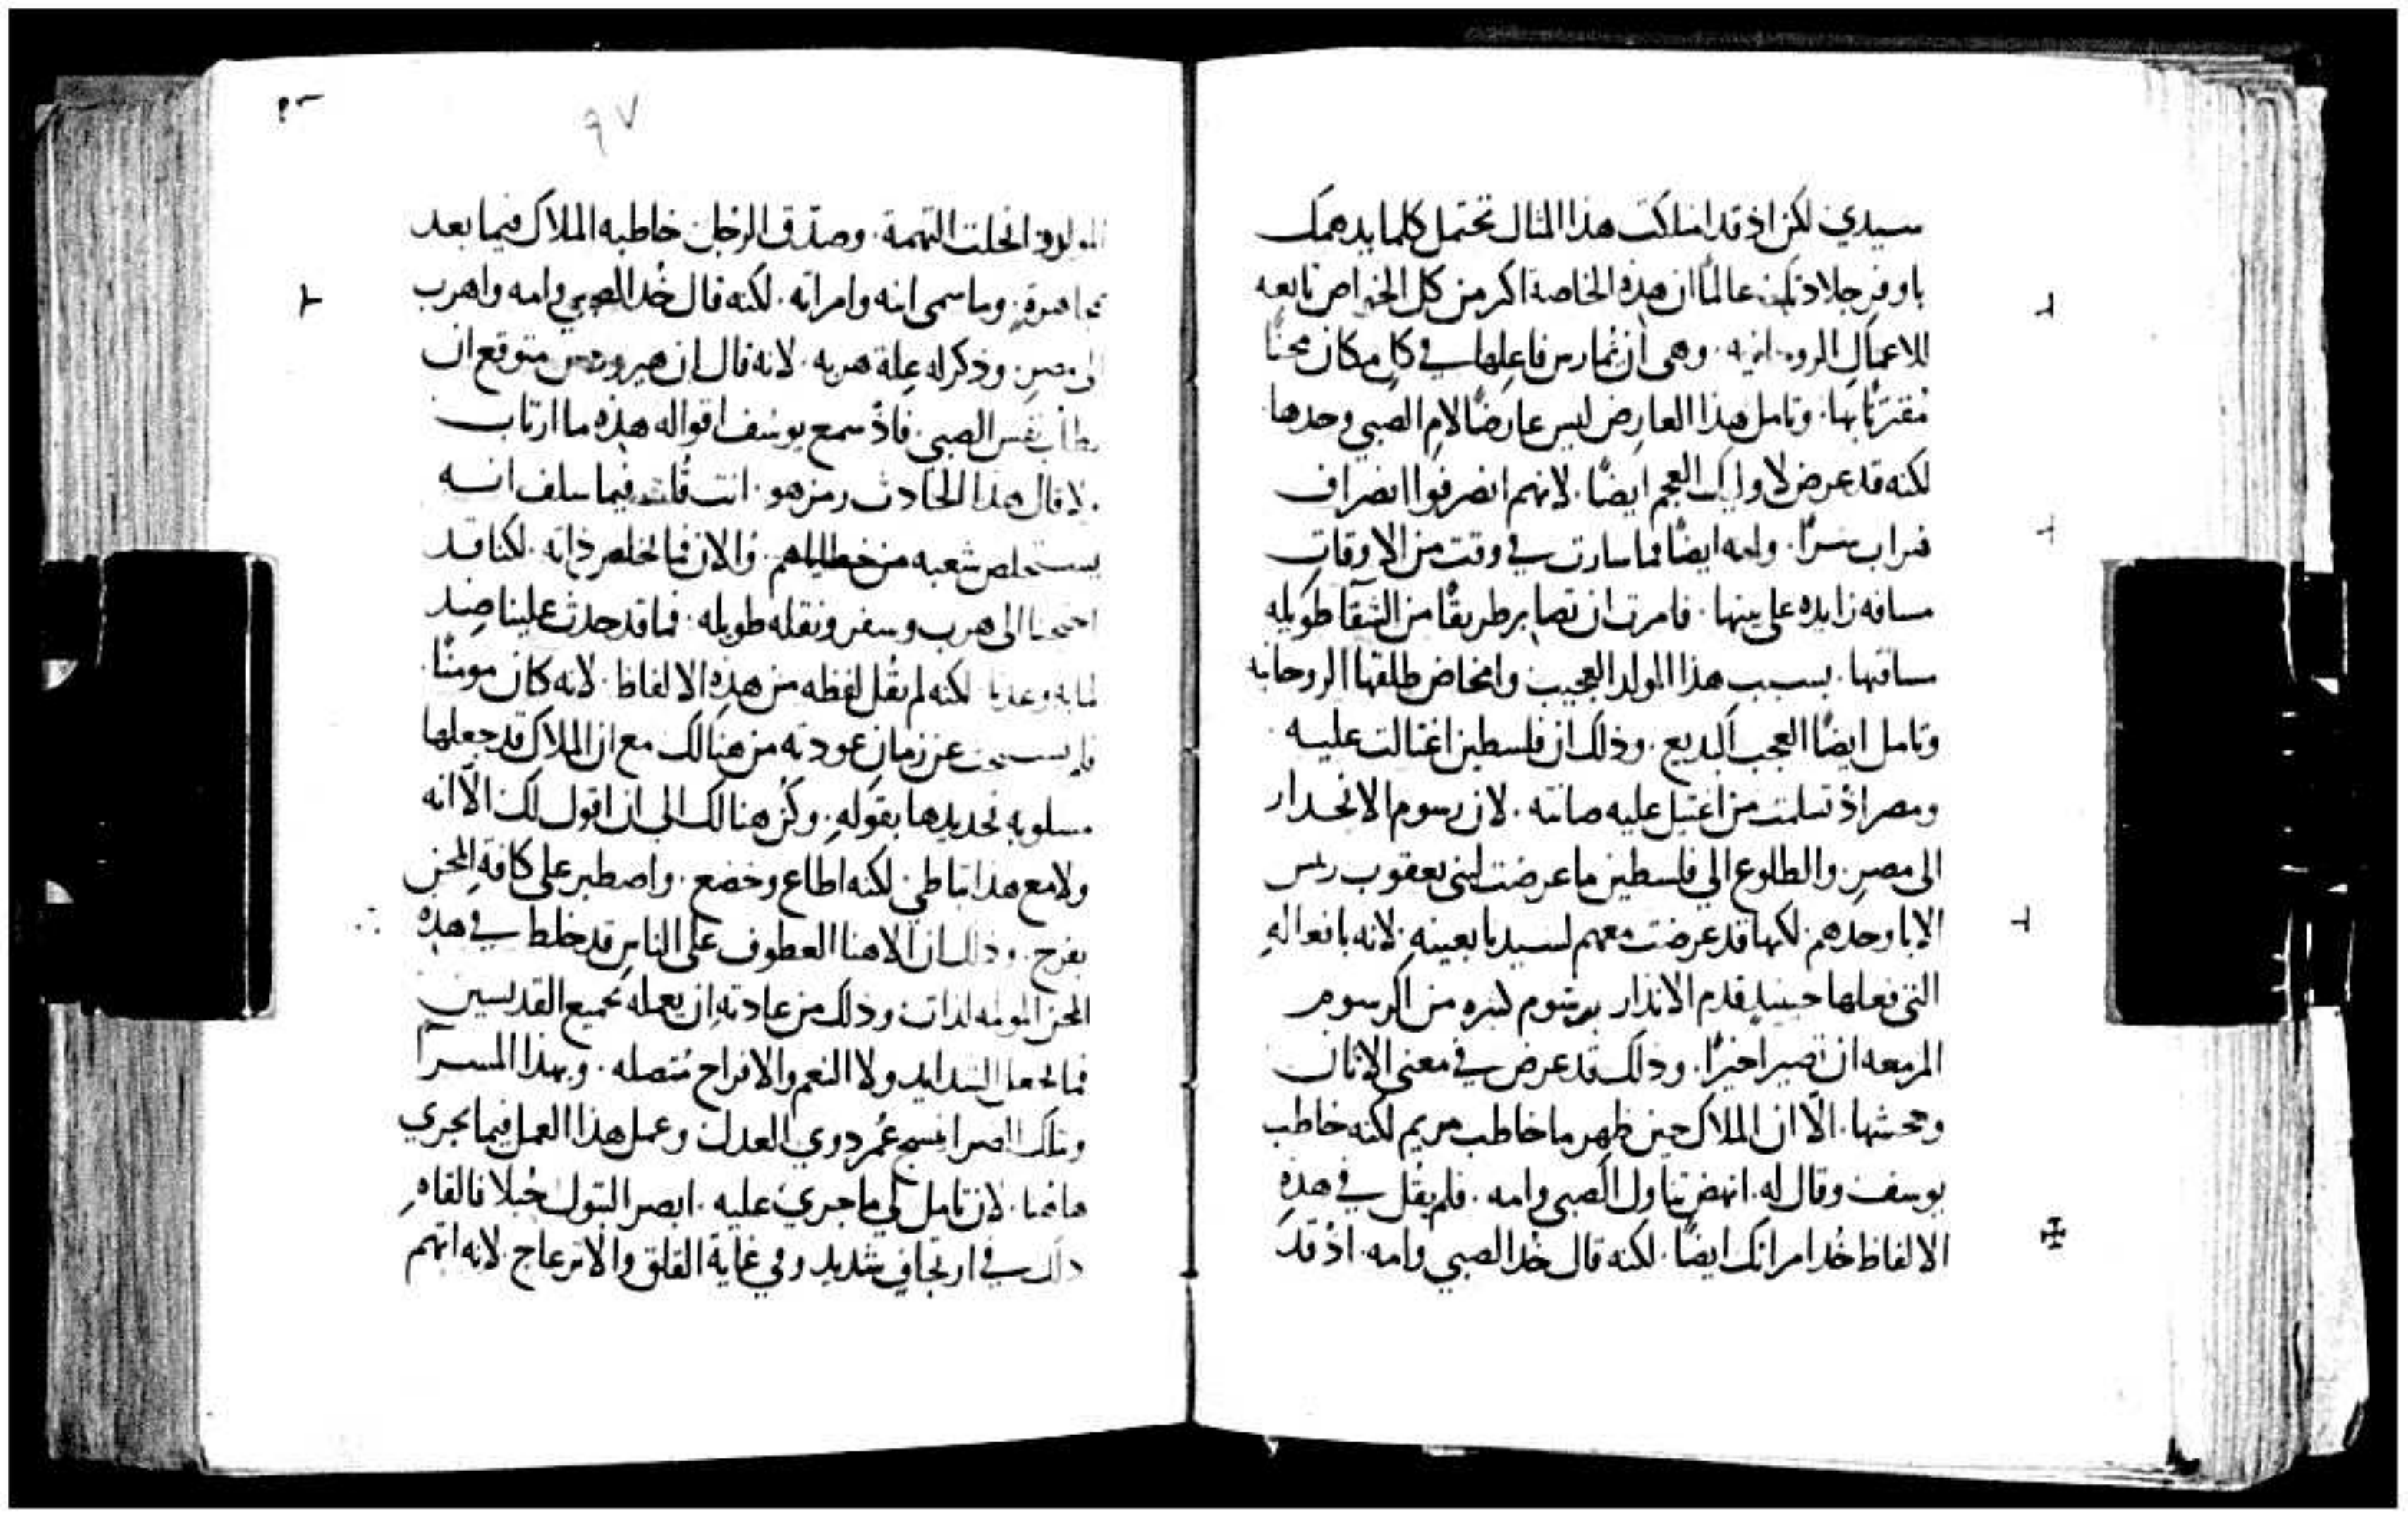 سيدي لكن اذ قد امتلكت هذا المثال تحتمل كلما يدهمك
باوفر جلاده عالمًا ان هذه الخاصة اكثر من كل الخواص تابعه
للاعمال الروحانيه. وهي ان تمارس فاعلها في كل مكان محنًا
مقترنًا بها. وتامل هذا العارض ليس عارضًا لام الصبي وحدها
لكنه قد عرض لاوليك العجم ايضًا. لانهم انصرفوا انصراف
هراب سرًا. وامه ايضًا فما سارت في وقت من الاوقات
مسافه زايده على بيتها. فامرت ان تصابر طريقًا من الشقا طويله
مسافتها. بسبب هذا المولد العجيب وامخاض طلقها الروحانيه
وتامل ايضًا العجب البديع. وذلك ان فلسطين اغتالت عليه
ومصر اذ تسلمت من اغتيل عليه صانته. لان رسوم الانحدار
الى مصر. والطلوع الي فلسطين ما عرضت لبني يعقوب ريس
الابا وحدهم. لكنها قد عرضت معهم لسيدنا بعينه. لانه بافعاله
التي فعلها حينيذ قدم الانذار برسوم كثيره من الرسوم
المزمعه ان تصير اخيرًا. وذلك قد عرض في معنى الاتان
وجحشها. الّا ان الملاك حين ظهر ما خاطب مريم لكنه خاطب
يوسف وقال له. انهض تناول الصبي وامه. فلم يقل في هذه
الالفاظ خُد امراتك ايضًا. لكنه قال خُد الصبي وامه. اذ قد
٩٧
المولود انحلت التهمة. وصدّق الرجل خاطبه الملاك فيما بعد
مجاهرةً. وما سمى ابنه وامراته. لكنه قال خُد الصبي وامه واهرب
الى مصر. وذكر له علة هربه. لانه قال ان هيرودس متوقع ان
يطلب نفس الصبي. فاذ سمع يوسف اقواله هذه ما ارتاب
ولا قال هذا الحادث رمز هو. انت قلت فيما سلف انه
يستخلص شعبه من خطاياهم. والان فما يخلص ذاته. لكنا قد
احتجنا الى هرب وسفر ونقله طويله. فما قد حدث علينا ضد
لما به وعدنا. لكنه لم يقل لفظه من هذه الالفاظ. لانه كان مومنًا.
عن زمان عودته من هنالك مع ان الملاك قد جعلها
مسلوبه تحديدها بقوله. وكُن هنالك الى ان اقول لك. الّا انه
ولا مع هذا تباطي. لكنه اطاع وخضع. واصطبر على كافة المحن
بفرح. وذلك ان الاهنا العطوف على الناس قد خلط في هذه
المحن المولمه لذات. وذلك من عادته ان يعمله بجميع القديسين
فما يجعل الشدايد ولا النعم والافراح متصله. وبهذا المسرا
وتلك الضرا ينسج عُمر ذوي العدل. وعمل هذا العمل فيما يجري
هاهنا. لان تامل لي ما جري عليه. ابصر البتول حُبلا فالقاه
ذلك في ارتجاف شديد وفي غاية القلق والانزعاج. لانه اتهم